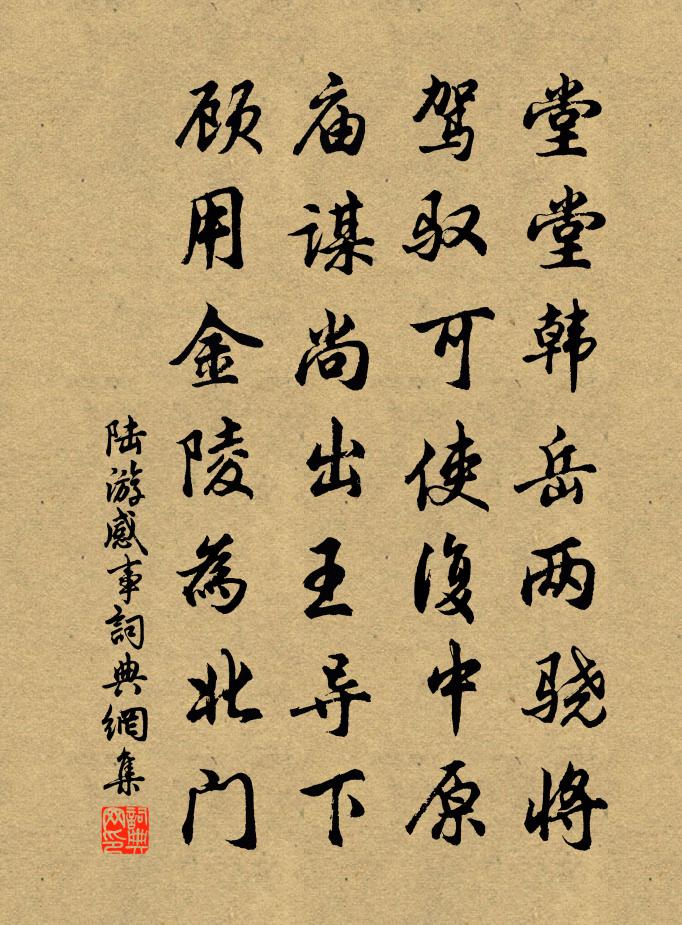 堂堂韩岳两骁将
驾驭可使復中原
庙谋尚出王导下
顾用金陵為北门
陆游感事詞典網集
詞典網印